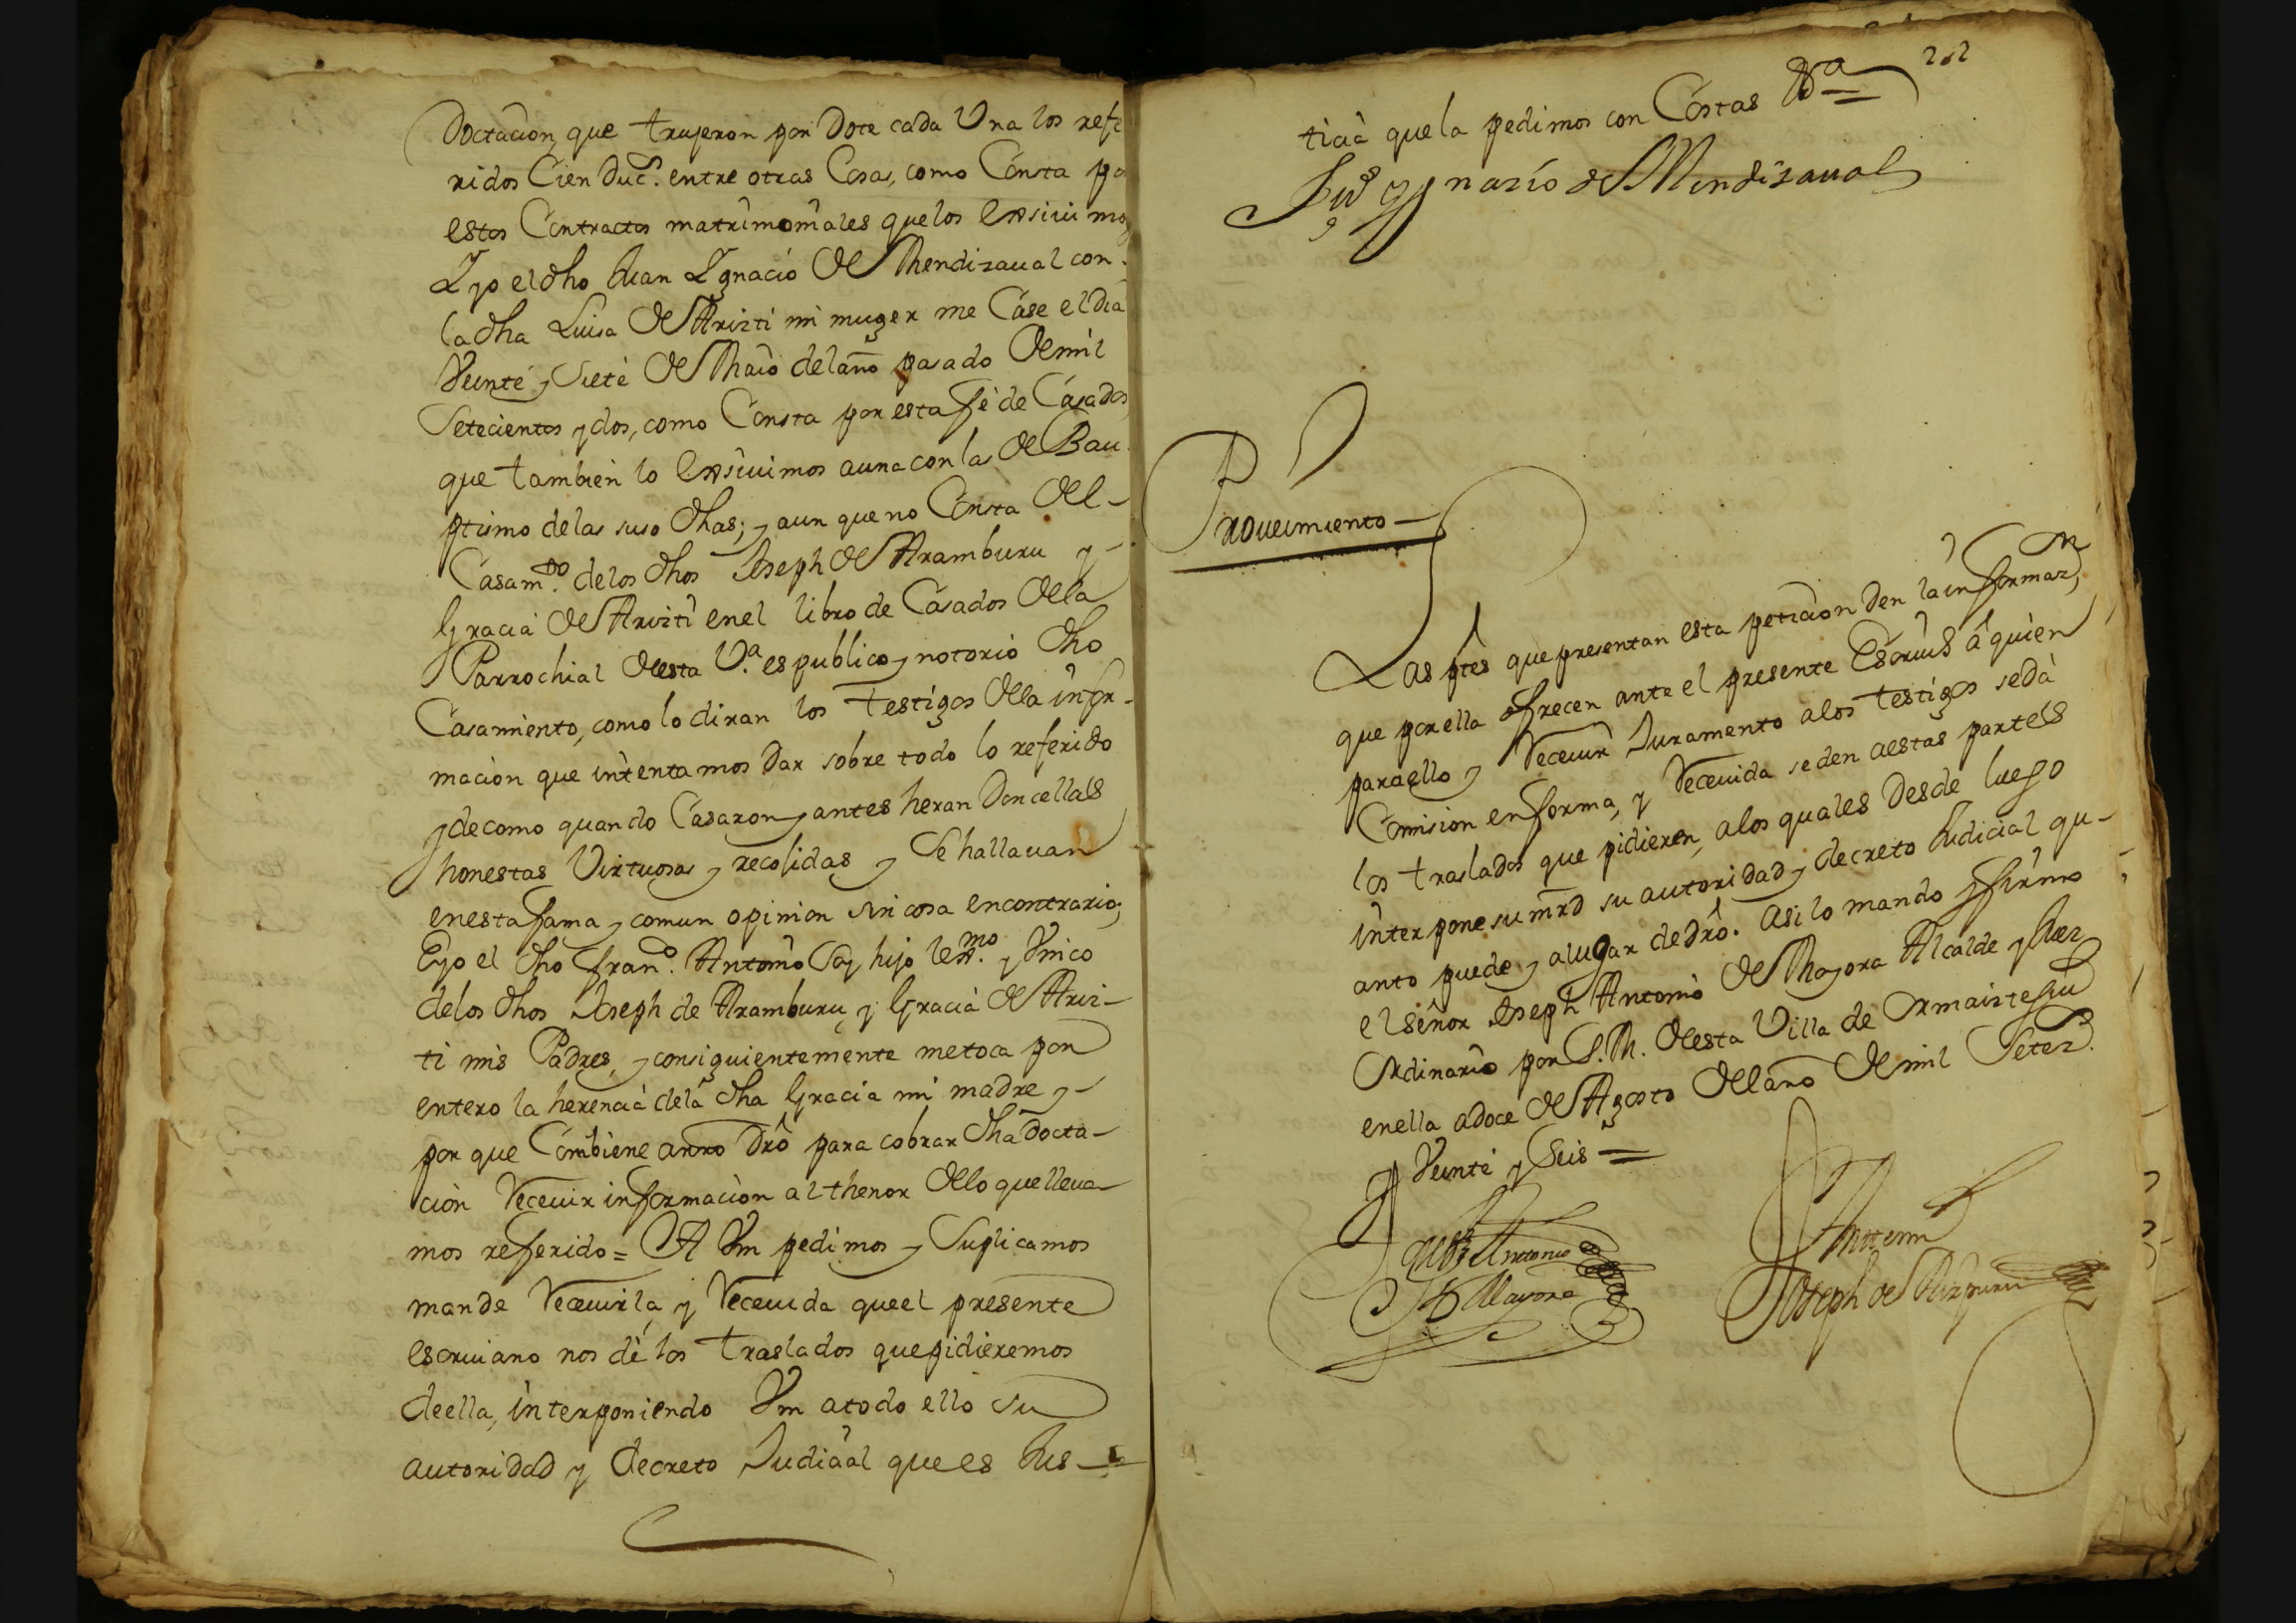 Doctacion, que trujeron por Dote cada Vna los refe
ridos Cien Duc.s entre otras Cosas, como Consta po
estos Contractos matrimoniales que los exsivimo
Y yo el dho Juan Ygnacio de Mendizaval con
la dha Luisa de Arizti mi muger me Case el dia
Veinte y Siete de Maio del año pasado de mil
Setecientos y dos, como Consta por esta fé de Casados
que tambien lo exsivimos a una con las de Bau
ptismo de las suso dhas; y aun que no Consta del
Casam.to de los dhos Joseph de Aramburu y
Gracia de Arizti en el libro de Casados de la
Parrochial desta V.a es publico y notorio dho
Casamiento, como lo diran los testigos de la infor-
macion que intentamos dar sobre todo lo referido
y de como quando Casaron y antes heran Doncellas
honestas Virtuosas y recojidas y Se hallavan
en esta fama y comun opinion sin cosa en contrario,
E yo el dho fran.co Antonio Soy hijo lex.mo y Vnico
de los dhos Joseph de Aramburu y Gracia de Ariz-
ti mis Padres, y consiguientemente me toca por
entero la herencia de la dha Gracia mi madre y
por que Combiene a nro dro para cobrar dha docta-
cion Recevir informacion al thenor de lo que lleva
mos referido = A Vm pedimos y Suplicamos
mande Recevirla, y Recevida que el presente
escrivano nos dé los traslados que pidieremos
de ella, interponiendo Vm a todo ello su
autoridad y decreto Judicial que es Jus-
202
ticia que la pedimos con Costas &a
Ju.o Ygnazio de Mendizaual
Proveimiento
Las ptes que presentan esta peticion Den la informaz.on
que por ella ofrecen ante el presente Escriv.o a quien
para ello y Recevir Juramento a los testigos se dà
Comision en forma, y Recevida se den a estas partes
los traslados que pidieren, a los quales Desde luego
interpone su mrd su autoridad y decreto Judicial qu-
anto puede y a lugar de dro. Asi lo mando y firmo
el señor Joseph Antonio de Mayora Alcalde y Juez
Ordinario por S. M. desta Villa de Ormaiztegui
en ella a doce de Agosto del año de mil Setez.s
y Veinte y Seis =
Joseph Antonio
de Mayora
Ante mi
Joseph de Aizpuru